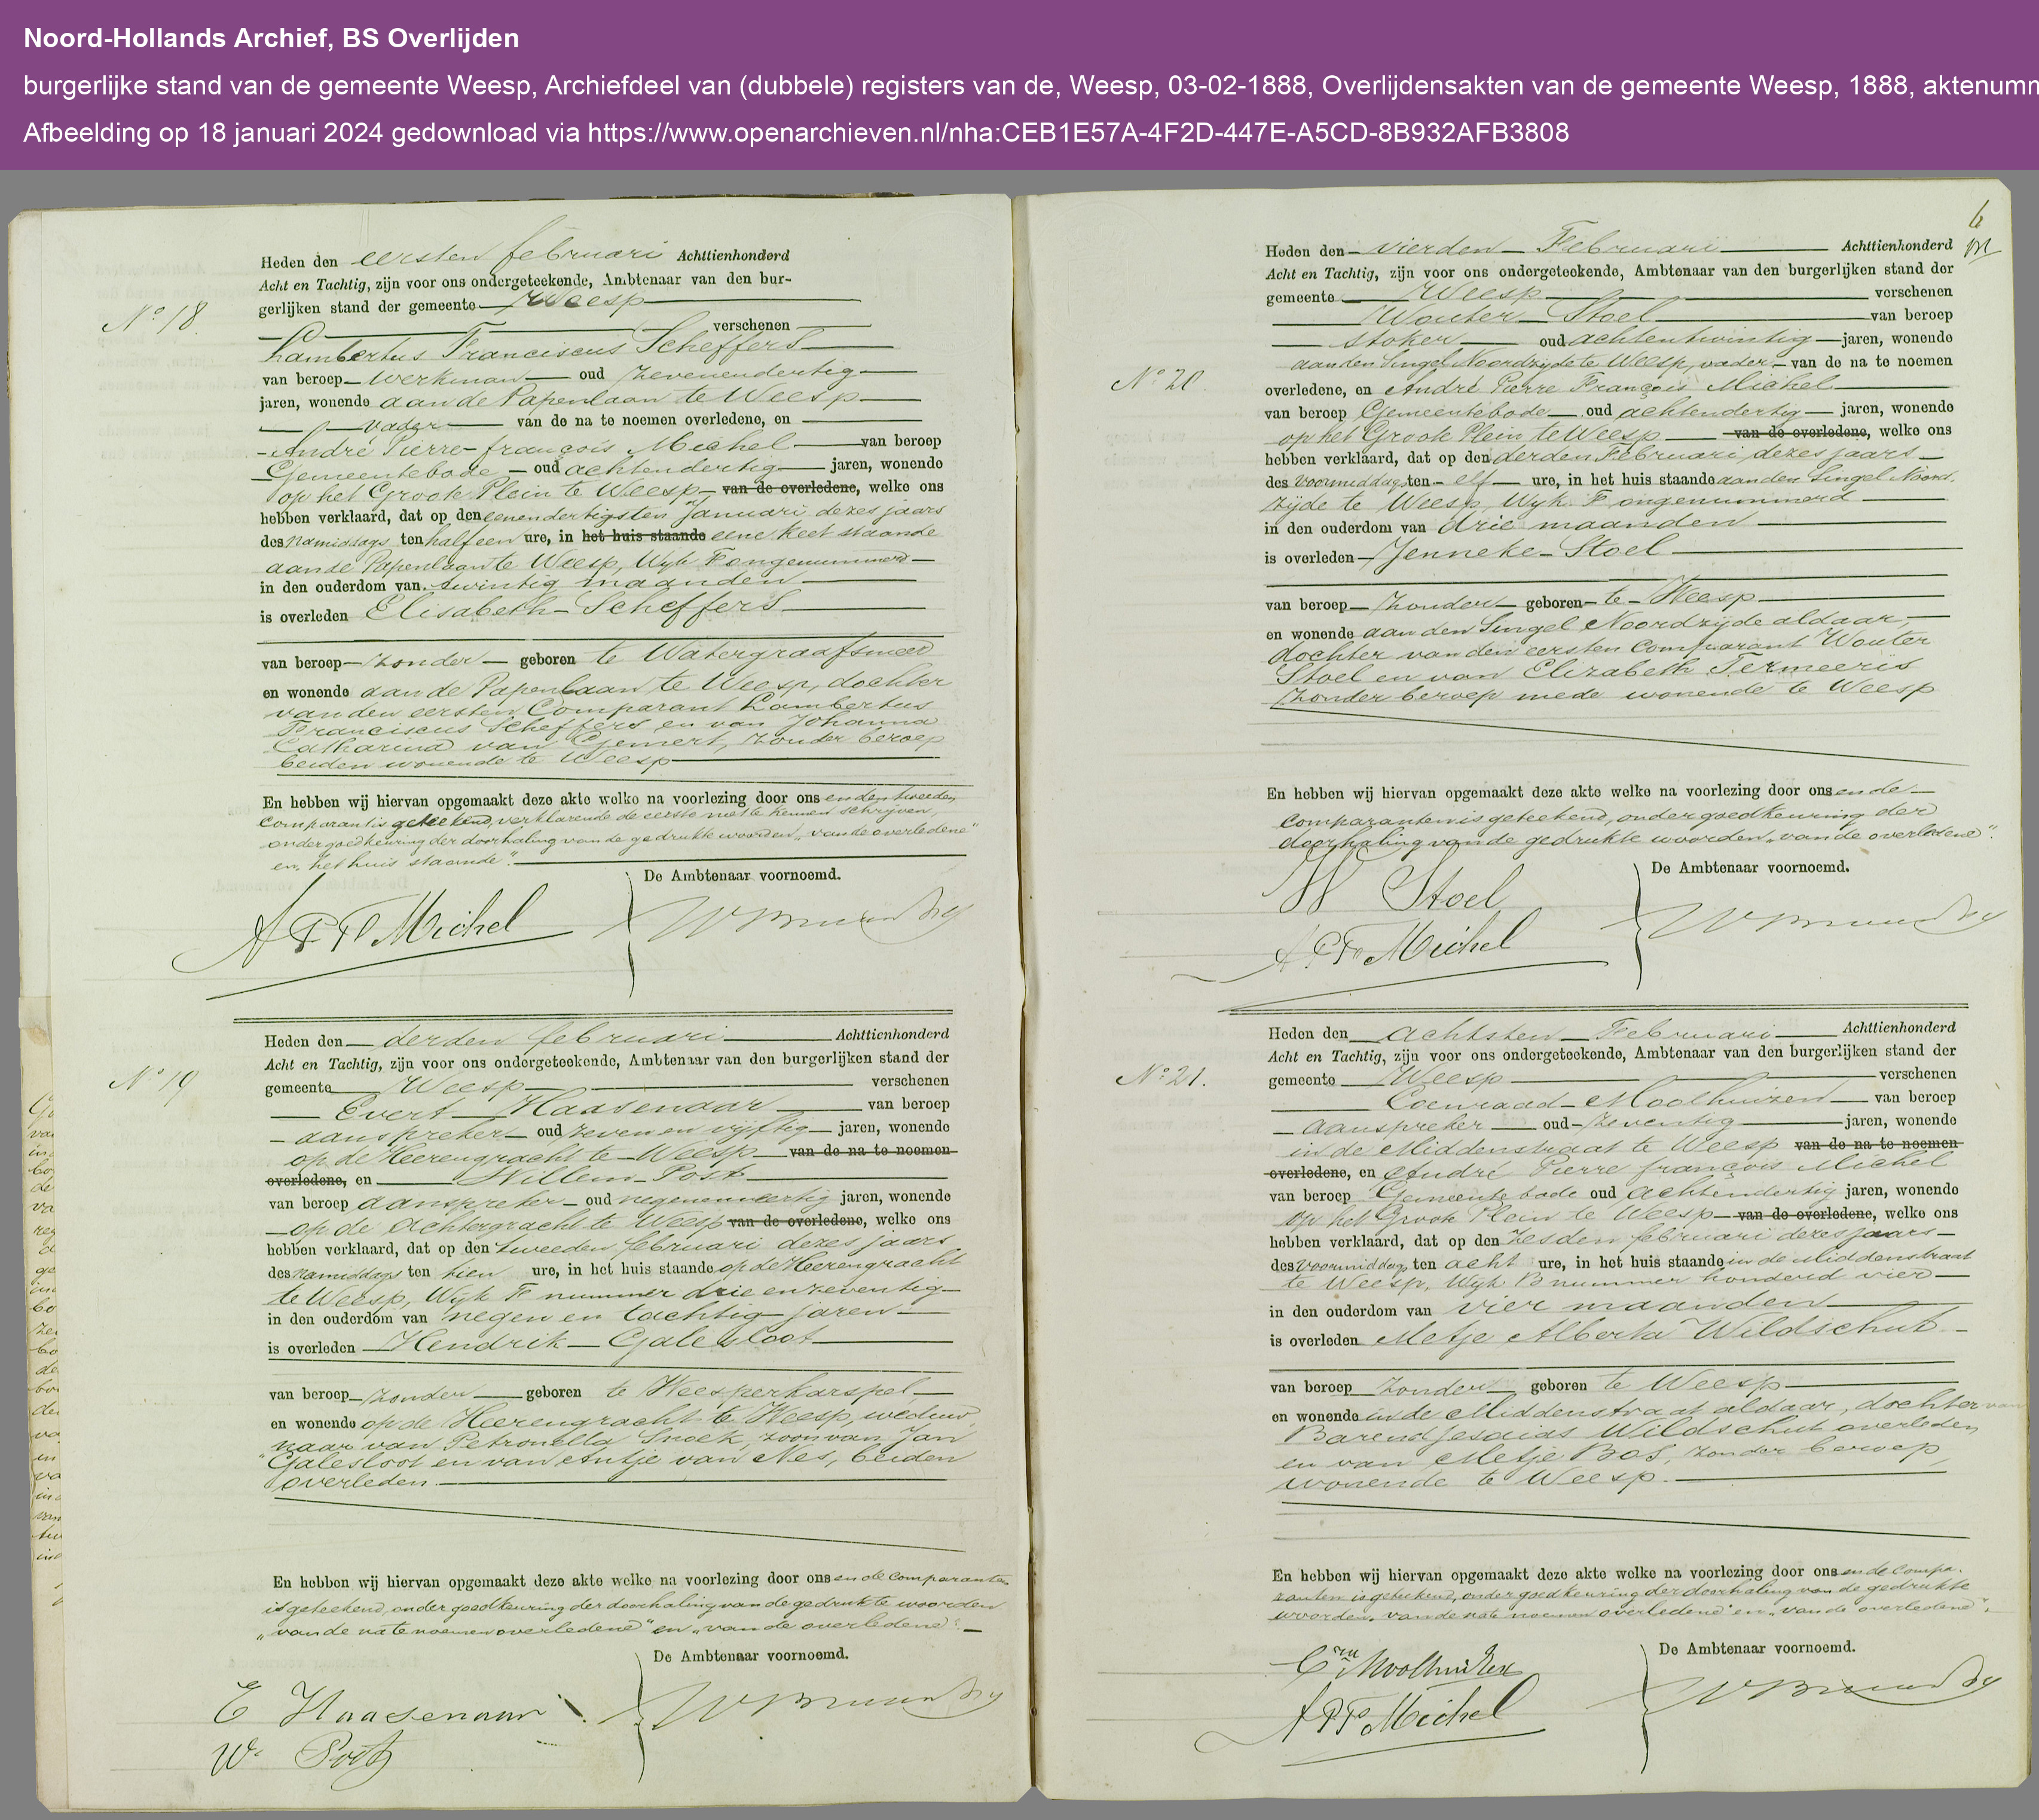 Noord-Hollands Archief, BS Overlijden
burgerlijke stand van de gemeente Weesp, Archiefdeel van (dubbele) registers van de, Weesp, 03-02-1888, Overlijdensakten van de gemeente Weesp, 1888, aktenumm
Afbeelding op 18 januari 2024 gedownload via https://www.openarchieven.nl/nha:CEB1E57A-4F2D-447E-A5CD-8B932AFB3808
Heden den eersten februari Achttienhonderd
Acht en Tachtig, zijn voor ons ondergeteekende, Ambtenaar van den bur-
gerlijken stand der gemeente Weesp
No 18.
verschenen
Lambertus Franciscus Scheffers
van beroep werkman oud zevenendertig
jaren, wonende aan de Papenlaan te Weesp
vader van de na te noemen overledene, en
André Pierre françois Michel van beroep
Gemeentebode oud achtendertig jaren, wonende
op het Groote Plein te Weesp van de overledene, welke ons
hebben verklaard, dat op den eenendertigsten Januari dezes jaars
des Namiddags ten half een ure, in het huis staande eene keet staande
aan de Papenlaan te Weesp, Wijk F ongenummerd
in den ouderdom van twintig maanden
is overleden Elisabeth Scheffers
van beroep zonder geboren te Watergraafsmeer
en wonende aan de Papenlaan te Weesp, dochter
van den eersten Comparant Lambertus
Franciscus Scheffers en van Johanna
Catharina van Gemert, zonder beroep
beiden wonende te Weesp
En hebben wij hiervan opgemaakt deze akte welke na voorlezing door ons en den tweeden
comparant is geteekend, verklarende de eerste niet te kunnen schrijven,
onder goedkeuring der doorhaling van de gedrukte woorden „van de overledene"
en „het huis staande".
De Ambtenaar voornoemd.
A P F Michel
Heden den derden februari Achttienhonderd
Acht en Tachtig, zijn voor ons ondergeteekende, Ambtenaar van den burgerlijken stand der
No 19
gemeente Weesp verschenen
Evert Haasenaar van beroep
aanspreker oud zeven en vijftig jaren, wonende
op de Heerengracht te Weesp van de na te noemen
overledene, en Willem Post
van beroep aanspreker oud negenenveertig jaren, wonende
op de Achtergracht te Weesp van de overledene, welke ons
hebben verklaard, dat op den tweeden februari dezes jaars
des Namiddags ten tien ure, in het huis staande op de Heerengracht
te Weesp, Wijk F nummer drie en zeventig
in den ouderdom van negen en tachtig jaren
is overleden Hendrik Galesloot
van beroep zonder geboren te Weesperkarspel,
en wonende op de Heerengracht te Weesp, weduw-
naar van Petronella Snoek, zoon van Jan
Galesloot en van Antje van Nes, beiden
overleden.
En hebben wij hiervan opgemaakt deze akte welke na voorlezing door ons en de comparanten
is geteekend, onder goedkeuring der doorhaling van de gedrukte woorden
„van de na te noemen overledene" en „van de overledene".
De Ambtenaar voornoemd.
E Haasenaar
W. Post
6
Heden den vierden Februari Achttienhonderd
Acht en Tachtig, zijn voor ons ondergeteekende, Ambtenaar van den burgerlijken stand der
gemeente Weesp verschenen
Wouter Stoel van beroep
stoker oud achtentwintig jaren, wonende
aan den Singel Noordzijde te Weesp, vader van de na te noemen
No 20.
overledene, en André Pierre François Michel
van beroep Gemeentebode oud achtendertig jaren, wonende
op het Groote Plein te Weesp van de overledene, welke ons
hebben verklaard, dat op den derden Februari dezes jaars
des Voormiddags ten elf ure, in het huis staande aan den Singel Noord-
zijde te Weesp, Wijk F ongenummerd
in den ouderdom van drie maanden
is overleden Jenneke Stoel
van beroep zonder geboren te Weesp
en wonende aan den Singel Noordzijde aldaar,
dochter van den eersten Comparant Wouter
Stoel en van Elizabeth Termeeris
zonder beroep mede wonende te Weesp
En hebben wij hiervan opgemaakt deze akte welke na voorlezing door ons en de
comparanten is geteekend, onder goedkeuring der
doorhaling van de gedrukte woorden „van de overledene".
De Ambtenaar voornoemd.
W Stoel
A. P. F. Michel
Heden den achtsten Februari Achttienhonderd
Acht en Tachtig, zijn voor ons ondergeteekende, Ambtenaar van den burgerlijken stand der
No 21.
gemeente Weesp verschenen
Coenraad Moolhuizen van beroep
aanspreker oud zeventig jaren, wonende
in de Middenstraat te Weesp van de na te noemen
overledene, en André Pierre françois Michel
van beroep Gemeentebode oud achtendertig jaren, wonende
op het Groote Plein te Weesp van de overledene, welke ons
hebben verklaard, dat op den zesden februari dezes jaars
des Voormiddags ten acht ure, in het huis staande in de Middenstraat
te Weesp, Wijk B nummer honderd vier
in den ouderdom van vier maanden
is overleden Metje Alberta Wildschut
van beroep zonder geboren te Weesp
en wonende in de Middenstraat aldaar, dochter van
Barend Jesaias Wildschut overleden
en van Metje Bos, zonder beroep,
wonende te Weesp.
En hebben wij hiervan opgemaakt deze akte welke na voorlezing door ons en de Compa-
ranten is geteekend, onder goedkeuring der doorhaling van de gedrukte
woorden „van de na te noemen overledene" en „van de overledene".
De Ambtenaar voornoemd.
Crn Moolhuizen
A P F Michel